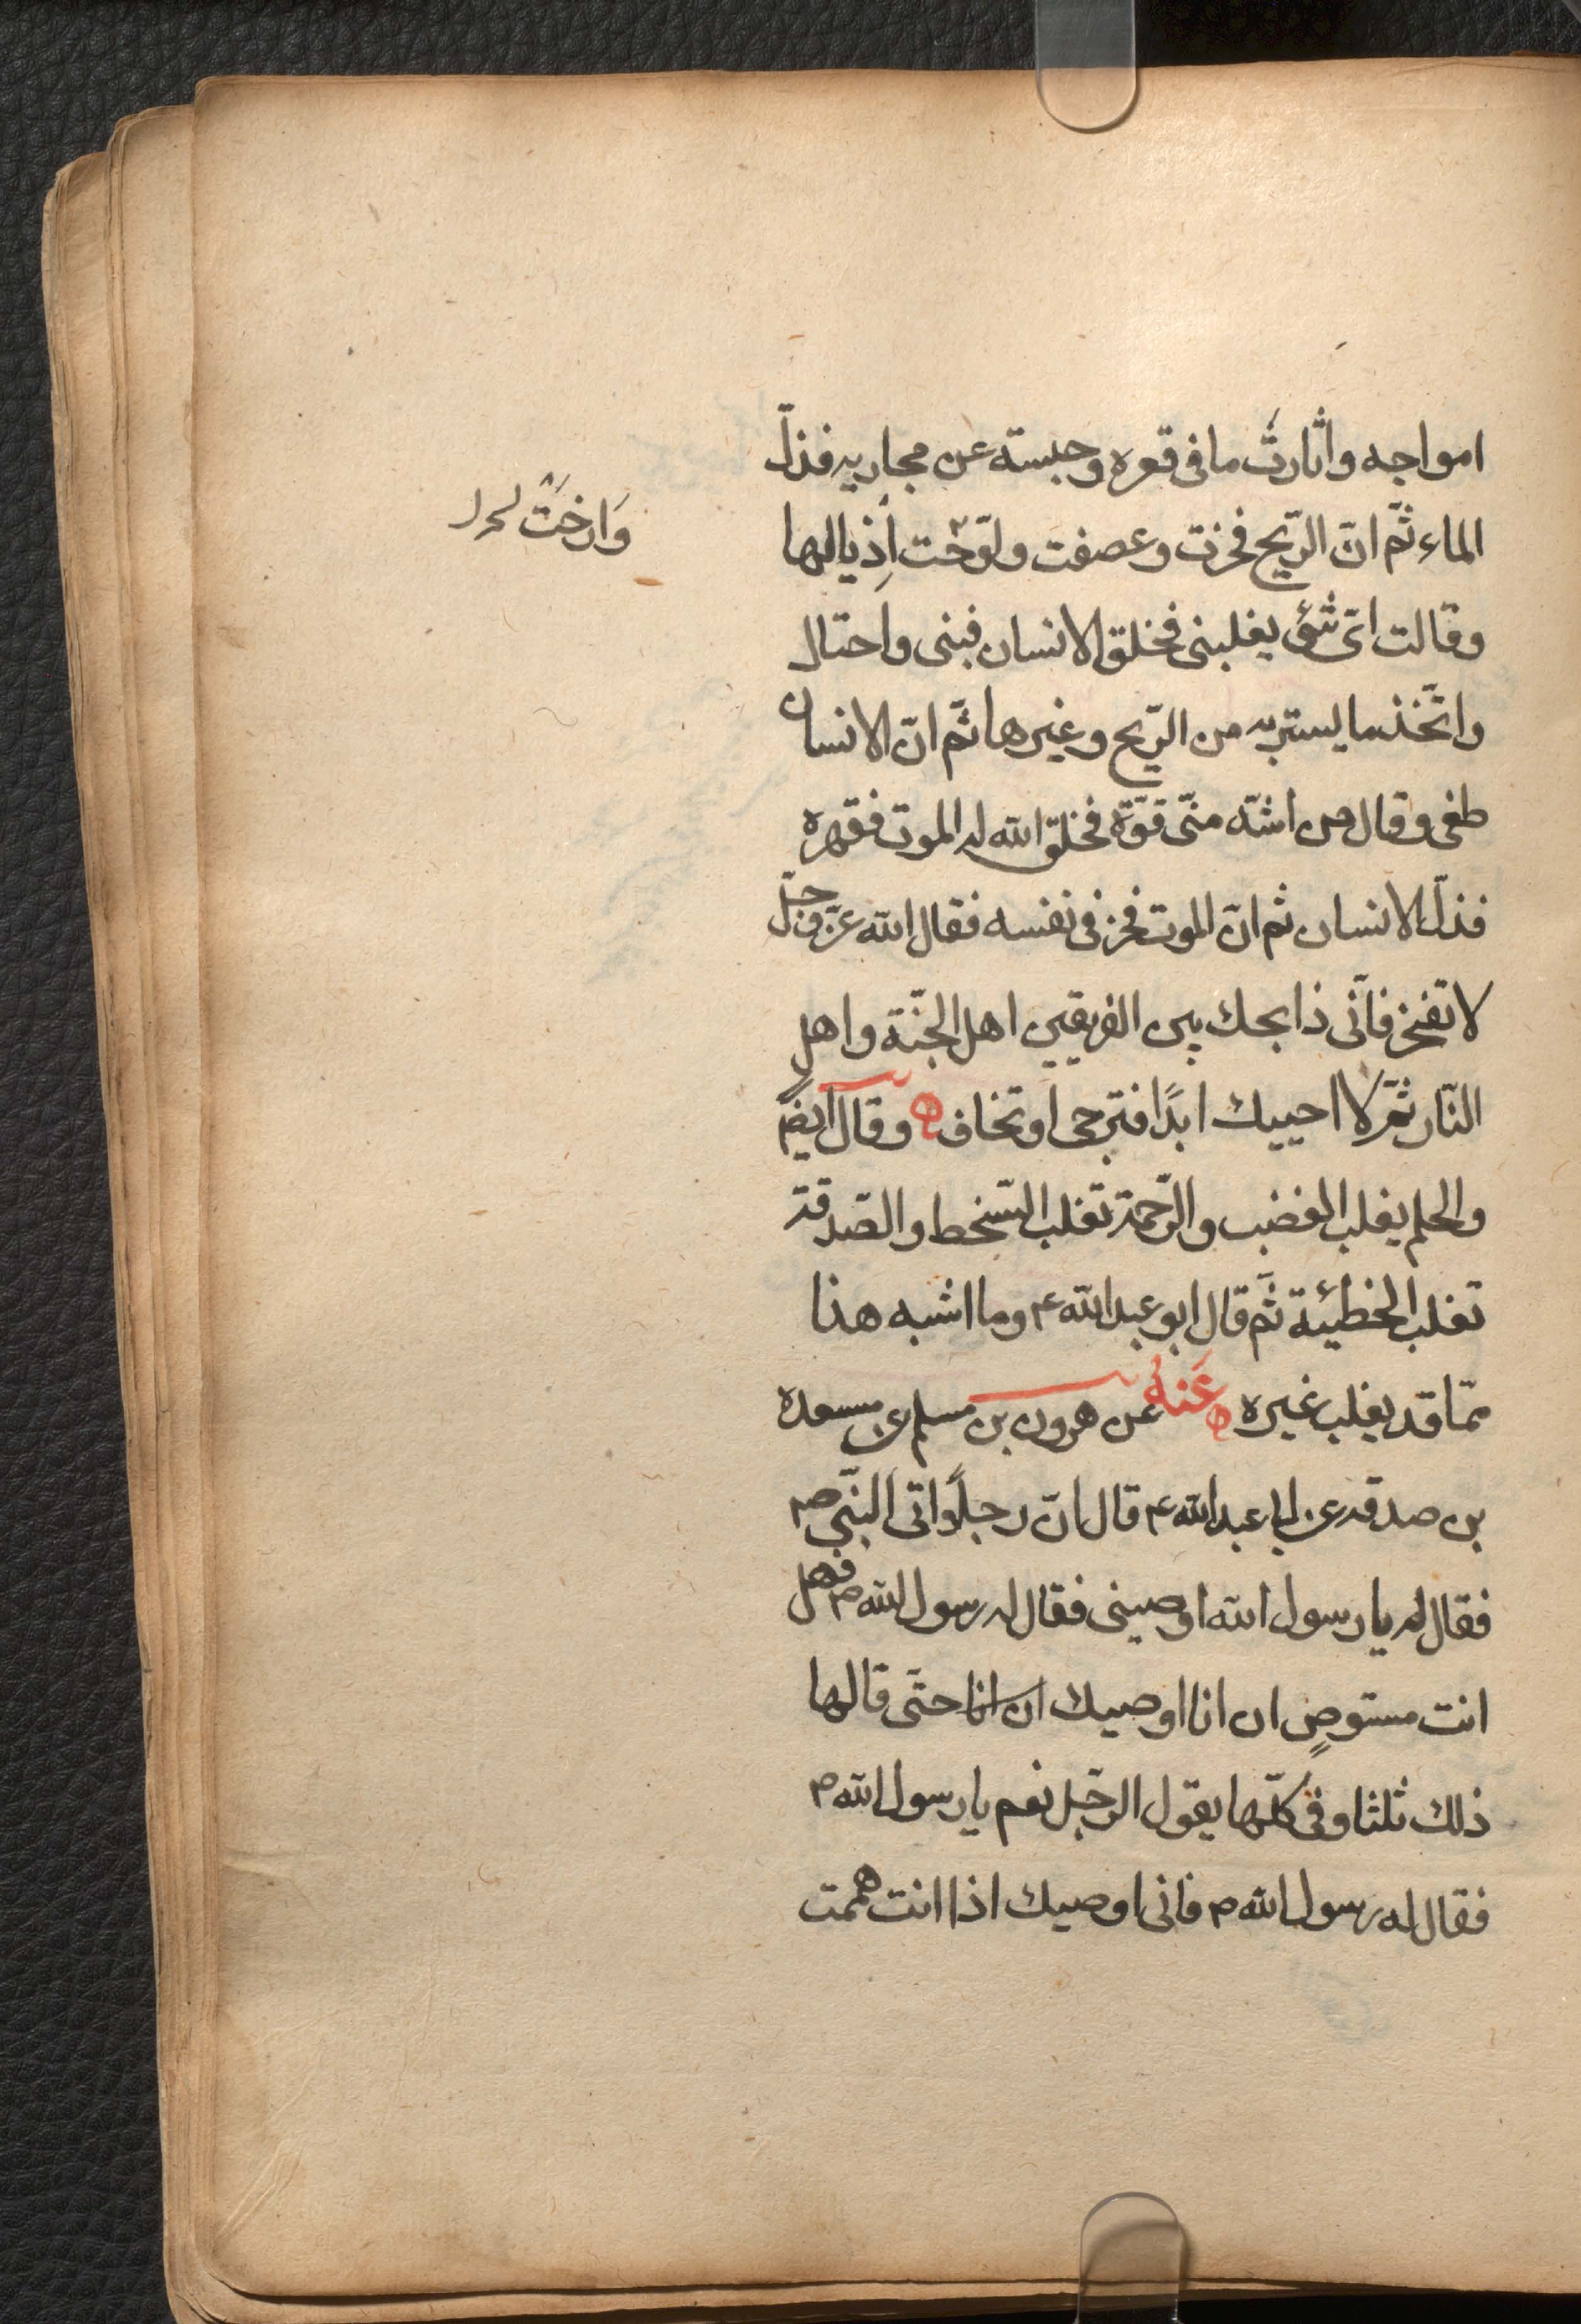 امواجه واثارتْ ما فى قعره وحبسته عن مجاريه فذلّ
الماء ثمّ انّ الرّيح فخرت وعصفت ولوّحت اَذيالها
وَارخَتْ
وقالت اىّ شئ يغلبنى فخلق الانسان فبنى واحتال
واتّخذ ما يستتر به من الرّيح وغيرها ثمّ انّ الانسان
طغى وقال من اشدّ منّى قوّة فخلق الله له الموت فقهره
فذلّ الانسان ثم انّ الموت فخر فى نفسه فقال الله عزّ وجلّ
لا تفخر فانّى ذابحك بين الفريقين اهل الجنّة واهل
النّار ثمّ لا احييك ابدًا فترجى او تخاف ه وقال ايضً
والحلم يغلب الغضب والرّحمة تغلب السّخط والصّدقة
تغلب الخطيئة ثمّ قال ابو عبد الله ع وما اشبه هذا
ممّا قد يغلب غيره ه عَنهُ عن هرون بن مسلم عن مسعده
بن صدقه عن ابا عبد الله ع قال انّ رجلًا اتى النّبى ص
فقال له يا رسول الله اوصينى فقال له رسول الله ص فهل
انت مستوصٍ ان انا اوصيك ان انا حتّى قالها
ذلك ثلثا وفى كلّها يقول الرّجل نعم يا رسول الله ص
فقال له رسول الله ص فانى اوصيك اذا انت هممت